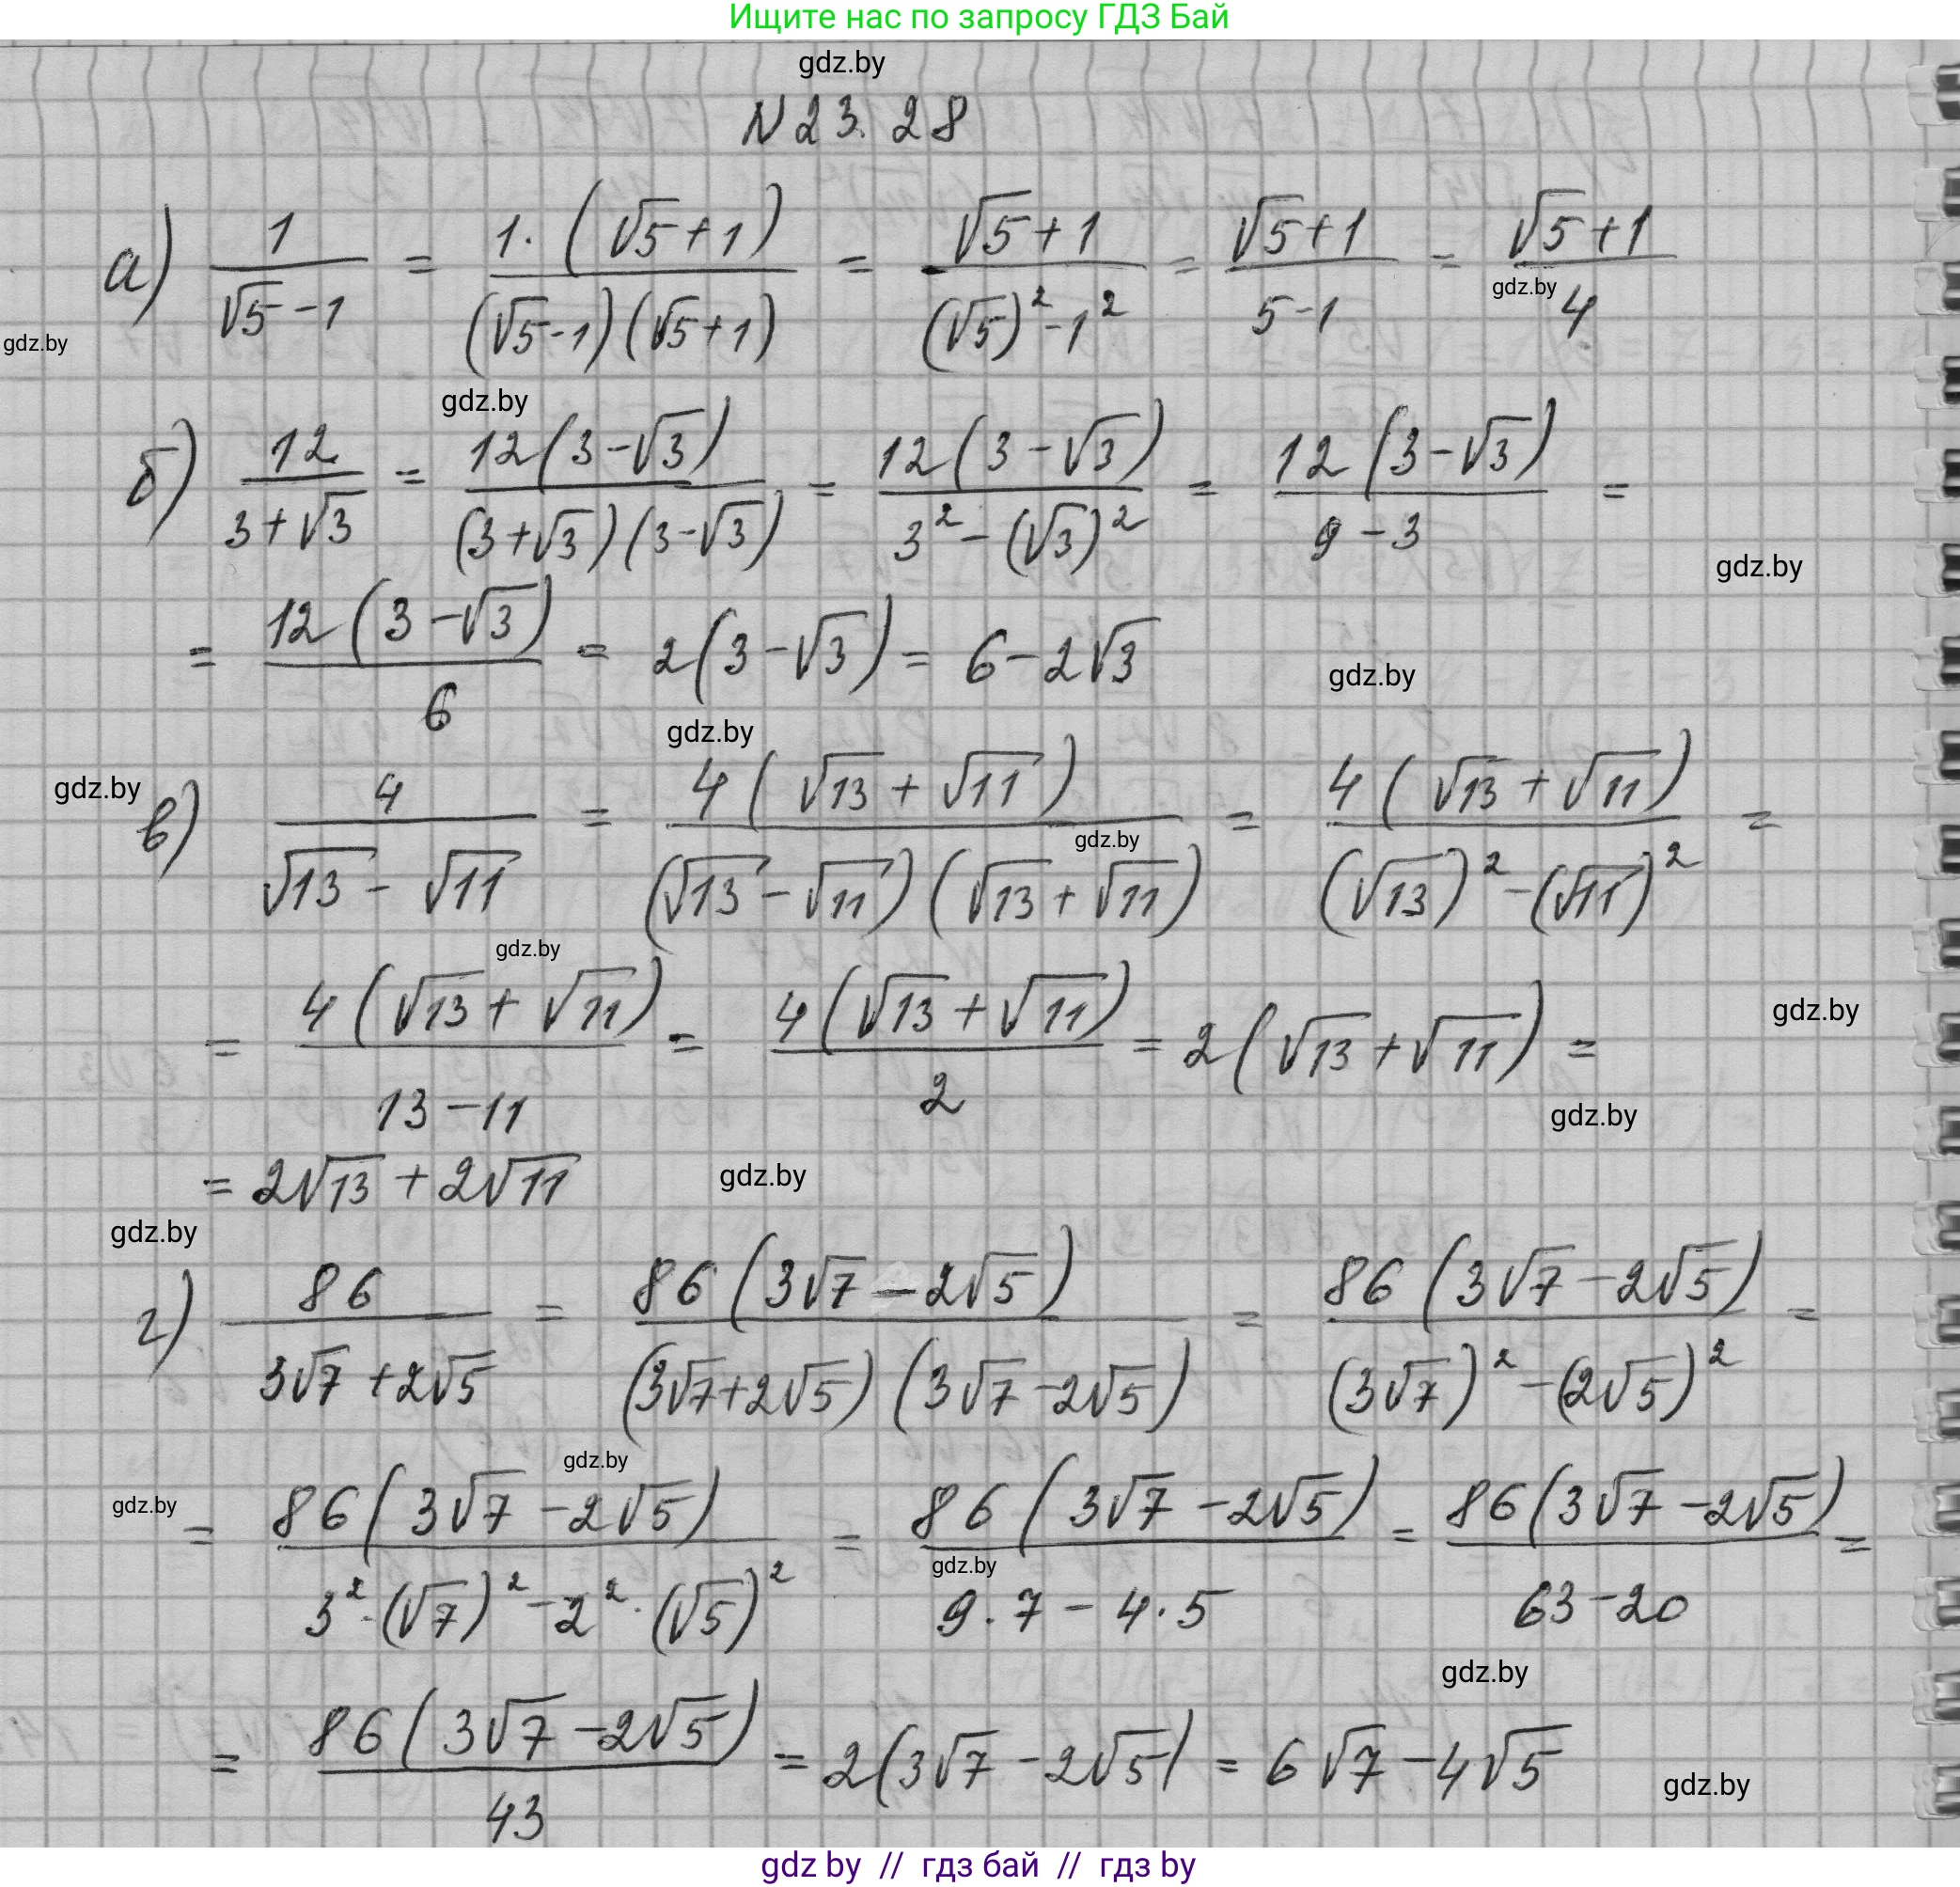 Ищите нас по запросу ГДЗ Бай
gdz.by
N 23.28
а) 1/(√5-1) = 1·(√5+1)/((√5-1)(√5+1)) = (√5+1)/((√5)²-1²) = (√5+1)/(5-1) = (√5+1)/4
gdz.by
gdz.by
gdz.by
б) 12/(3+√3) = 12(3-√3)/((3+√3)(3-√3)) = 12(3-√3)/(3²-(√3)²) = 12(3-√3)/(9-3) =
gdz.by
= 12(3-√3)/6 = 2(3-√3) = 6-2√3
gdz.by
gdz.by
gdz.by
в) 4/(√13-√11) = 4(√13+√11)/((√13-√11)(√13+√11)) = 4(√13+√11)/((√13)²-(√11)²) =
gdz.by
gdz.by
= 4(√13+√11)/(13-11) = 4(√13+√11)/2 = 2(√13+√11) =
gdz.by
gdz.by
= 2√13+2√11
gdz.by
gdz.by
г) 86/(3√7+2√5) = 86(3√7-2√5)/((3√7+2√5)(3√7-2√5)) = 86(3√7-2√5)/((3√7)²-(2√5)²) =
gdz.by
gdz.by
= 86(3√7-2√5)/(3²·(√7)²-2²·(√5)²) = 86(3√7-2√5)/(9·7-4·5) = 86(3√7-2√5)/(63-20) =
gdz.by
gdz.by
= 86(3√7-2√5)/43 = 2(3√7-2√5) = 6√7-4√5
gdz.by
gdz by // гдз бай // гдз by